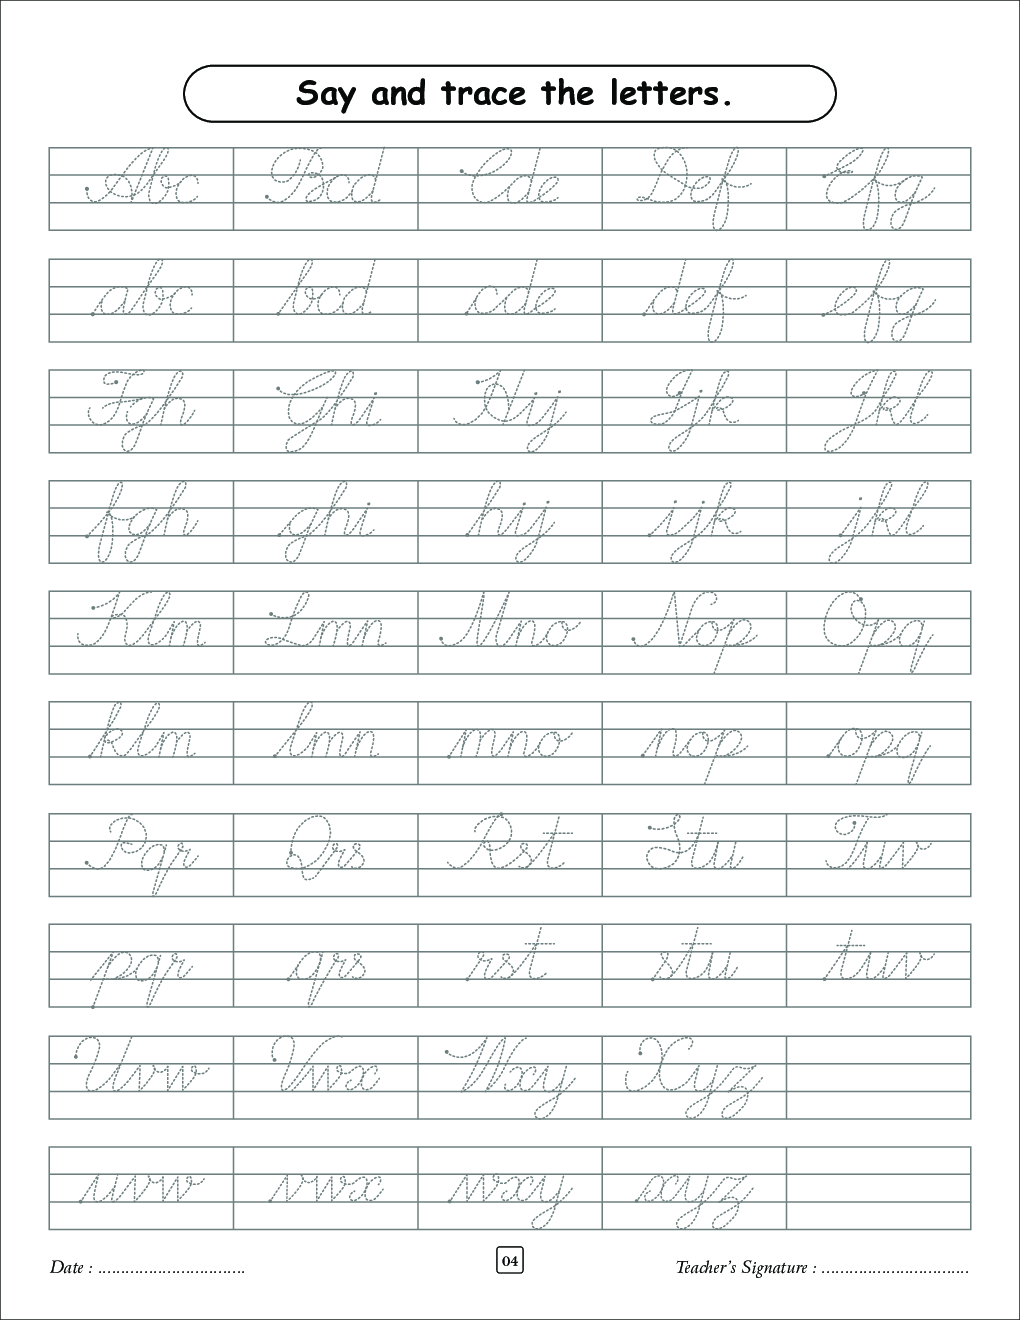 Say and trace the letters.
Abc Bcd Cde Def Efg
abc bcd cde def efg
Fgh Ghi Hij Ijk Jkl
fgh ghi hij ijk jkl
Klm Lmn Mno Nop Opq
klm lmn mno nop opq
Pqr Qrs Rst Stu Tuv
pqr qrs rst stu tuv
Uvw Vwx Wxy Xyz
uvw vwx wxy xyz
Date : ................................ 04 Teacher's Signature : ................................